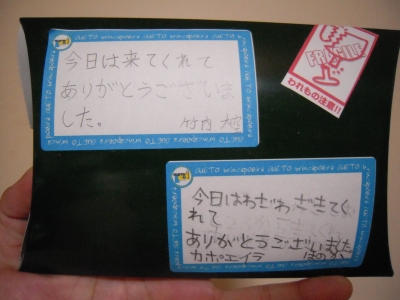 今日は来てくれて
ありがとうございま
した。
竹内
FRAGILE
われもの注意!!
今日はわざわざきてく
れて
ありがとうございました
カポエイラ ほのか